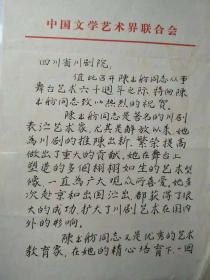 中国文学艺术界联合会
四川省川剧院：
值此召开陈书舫同志从事
舞台艺术六十周年之际，特向陈
书舫同志致以热烈的祝贺。
陈书舫同志是著名的川剧
表演艺术家，尤其是解放以来，她
为川剧的推陈出新、繁荣提高
做出了重大的贡献。她在舞台上
塑造的多个栩栩如生的艺术型
像，一直为广大观众所喜爱。她多
次赴京和出国演出，都获得了很
大的成功，扩大了川剧艺术在国内
外的影响。
陈书舫同志又是优秀的艺术
教育家，在她的精心培育下，一因